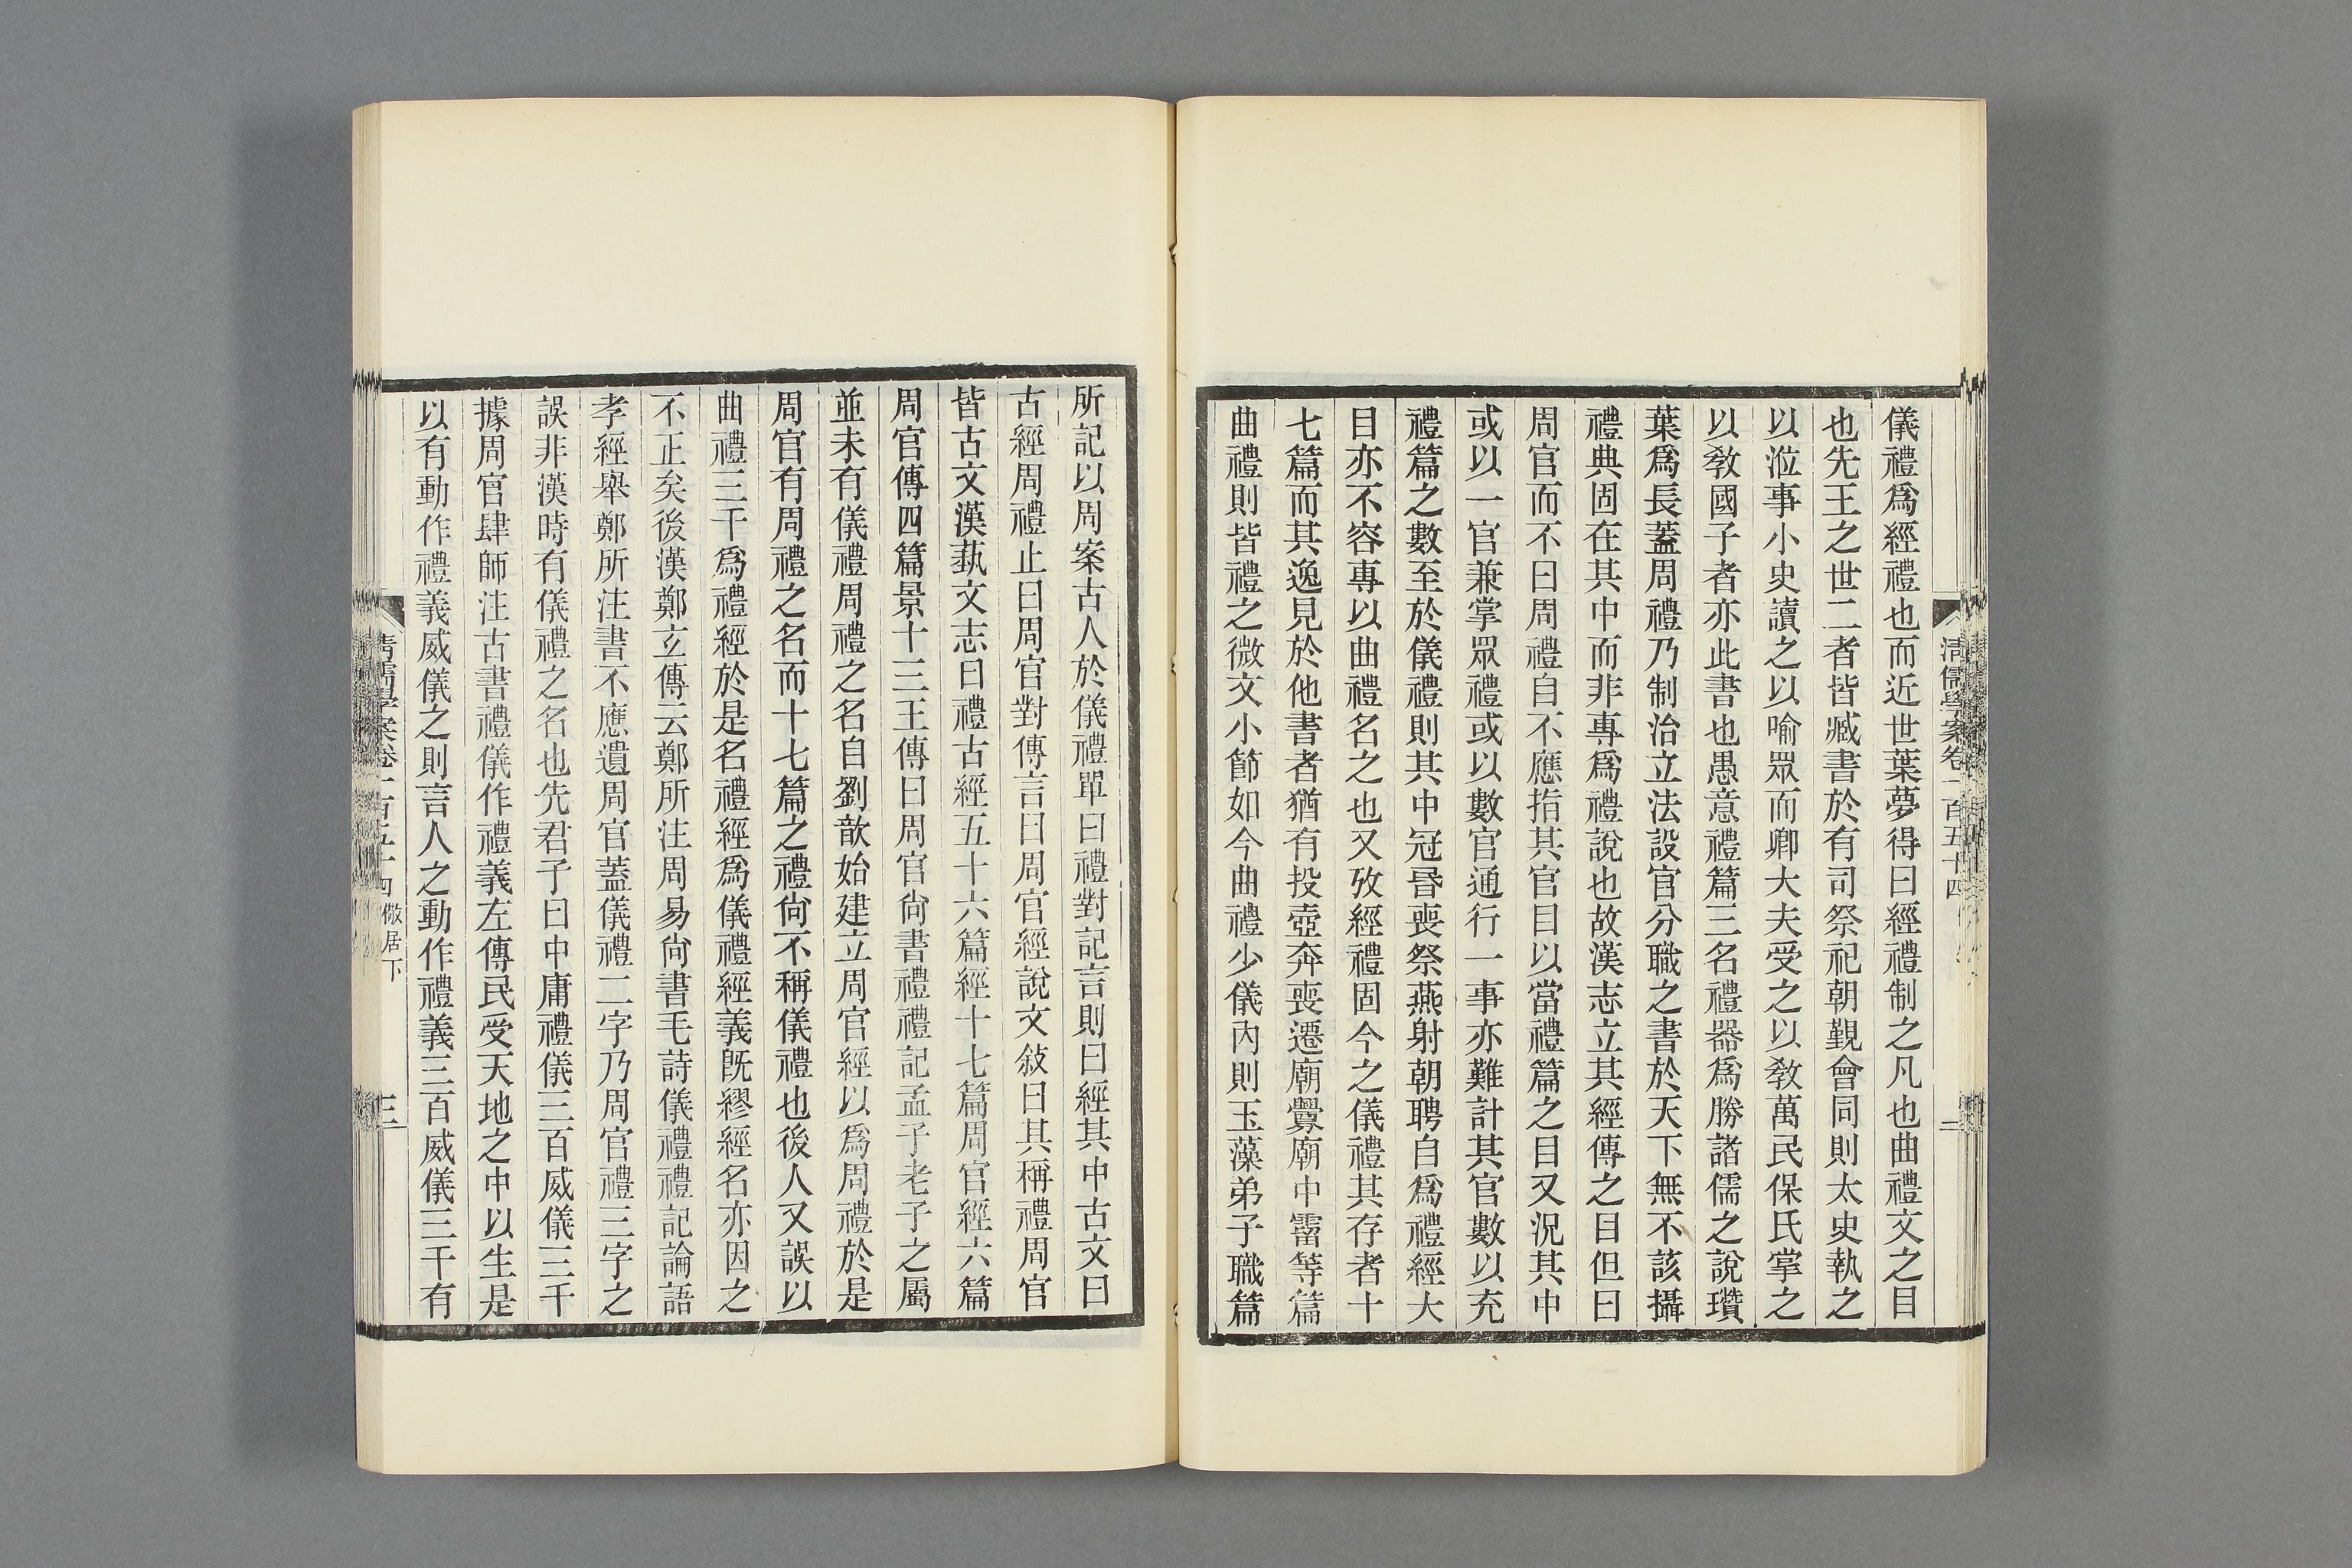 清儒學案卷一百五十四
二
儀禮爲經禮也而近世葉夢得曰經禮制之凡也曲禮文之目
也先王之世二者皆臧書於有司祭祀朝覲會同則太史執之
以涖事小史讀之以喻眾而卿大夫受之以敎萬民保氏掌之
以敎國子者亦此書也愚意禮篇三名禮器爲勝諸儒之說瓚
葉爲長蓋周禮乃制治立法設官分職之書於天下無不該攝
禮典固在其中而非專爲禮說也故漢志立其經傳之目但曰
周官而不曰周禮自不應指其官目以當禮篇之目又況其中
或以一官兼掌眾禮或以數官通行一事亦難計其官數以充
禮篇之數至於儀禮則其中冠昬喪祭燕射朝聘自爲禮經大
目亦不容專以曲禮名之也又攷經禮固今之儀禮其存者十
七篇而其逸見於他書者猶有投壺奔喪遷廟釁廟中霤等篇
曲禮則皆禮之微文小節如今曲禮少儀內則玉藻弟子職篇
所記以周案古人於儀禮單曰禮對記言則曰經其中古文曰
古經周禮止曰周官對傳言曰周官經說文敍曰其稱禮周官
皆古文漢蓺文志曰禮古經五十六篇經十七篇周官經六篇
周官傳四篇景十三王傳曰周官尙書禮禮記孟子老子之屬
並未有儀禮周禮之名自劉歆始建立周官經以爲周禮於是
周官有周禮之名而十七篇之禮尙不稱儀禮也後人又誤以
曲禮三千爲禮經於是名禮經爲儀禮經義旣繆經名亦因之
不正矣後漢鄭玄傳云鄭所注周易尙書毛詩儀禮禮記論語
孝經舉鄭所注書不應遺周官蓋儀禮二字乃周官禮三字之
誤非漢時有儀禮之名也先君子曰中庸禮儀三百威儀三千
據周官肆師注古書禮儀作禮義左傳民受天地之中以生是
以有動作禮義威儀之則言人之動作禮義三百威儀三千有
清儒學案卷一百五十四 儆居下
三